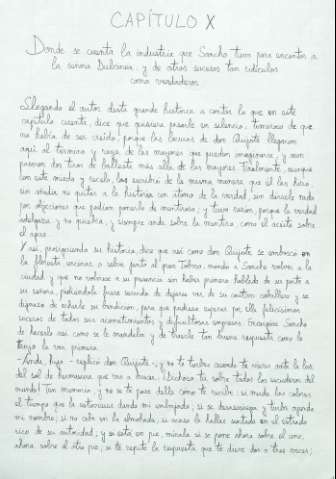 CAPÍTULO X
Donde se cuenta la industria que Sancho tuvo para encantar a
la señora Dulcinea, y de otros sucesos tan ridículos
como verdaderos
Llegando el autor desta grande historia a contar lo que en este
capítulo cuenta, dice que quisiera pasarle en silencio, temeroso de que
no había de ser creído, porque las locuras de don Quijote llegaron
aquí al término y raya de las mayores que pueden imaginarse, y aun
pasaron dos tiros de ballesta más allá de las mayores. Finalmente, aunque
con este miedo y recelo, las escribió de la misma manera que él las hizo,
sin añadir ni quitar a la historia un átomo de la verdad, sin dársele nada
por objeciones que podían ponerle de mentiroso; y tuvo razón, porque la verdad
adelgaza y no quiebra, y siempre anda sobre la mentira como el aceite sobre
el agua.
Y así, prosiguiendo su historia, dice que así como don Quijote se emboscó en
la floresta, encinar o selva junto al gran Toboso, mandó a Sancho volver a la
ciudad, y que no volviese a su presencia sin haber primero hablado de su parte a
su señora, pidiéndole fuese servida de dejarse ver de su cautivo caballero y se
dignase de echarle su bendición, para que pudiese esperar por ella felicísimos
sucesos de todos sus acometimientos y dificultosas empresas. Encargóse Sancho
de hacerlo así como se le mandaba y de traerle tan buena respuesta como le
trujo la vez primera.
-Anda, hijo -replicó don Quijote-, y no te turbes cuando te vieres ante la luz
del sol de hermosura que vas a buscar. ¡Dichoso tú sobre todos los escuderos del
mundo! Ten memoria, y no se te pase della cómo te recibe: si muda las colores
el tiempo que la estuvieres dando mi embajada; si se desasosiega y turba oyendo
mi nombre; si no cabe en la almohada, si acaso la hallas sentada en el estrado
rico de su autoridad; y si está en pie, mírala si se pone ahora sobre el uno,
ahora sobre el otro pie; si te repite la respuesta que te diere dos o tres veces;